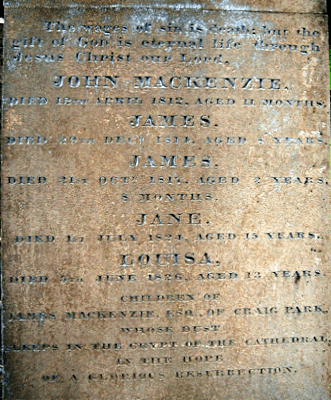 The wages of sin is death, but the
gift of God is eternal life through
Jesus Christ our Lord,
JOHN MACKENZIE.
DIED 12TH APRIL 1812, AGED 11 MONTHS.
JAMES.
DIED 29TH DECR 1814, AGED YEARS.
JAMES.
DIED 21ST OCTR AGED 2 YEARS,
8 MONTHS.
JANE.
DIED 1ST JULY 1824, AGED 15 YEARS.
LOUISA.
DIED 5TH JUNE 1826, AGED 13 YEARS.
CHILDREN OF
JAMES MACKENZIE, ESQ. OF CRAIG PARK,
WHOSE DUST
SLEEPS IN THE CRYPT OF THE CATHEDRAL,
IN THE HOPE
OF A GLORIOUS RESURRECTION.